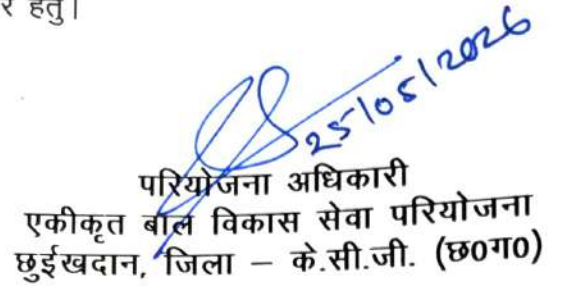 र हेतु।
25/05/2026
परियोजना अधिकारी
एकीकृत बाल विकास सेवा परियोजना
छुईखदान, जिला – के.सी.जी. (छ0ग0)